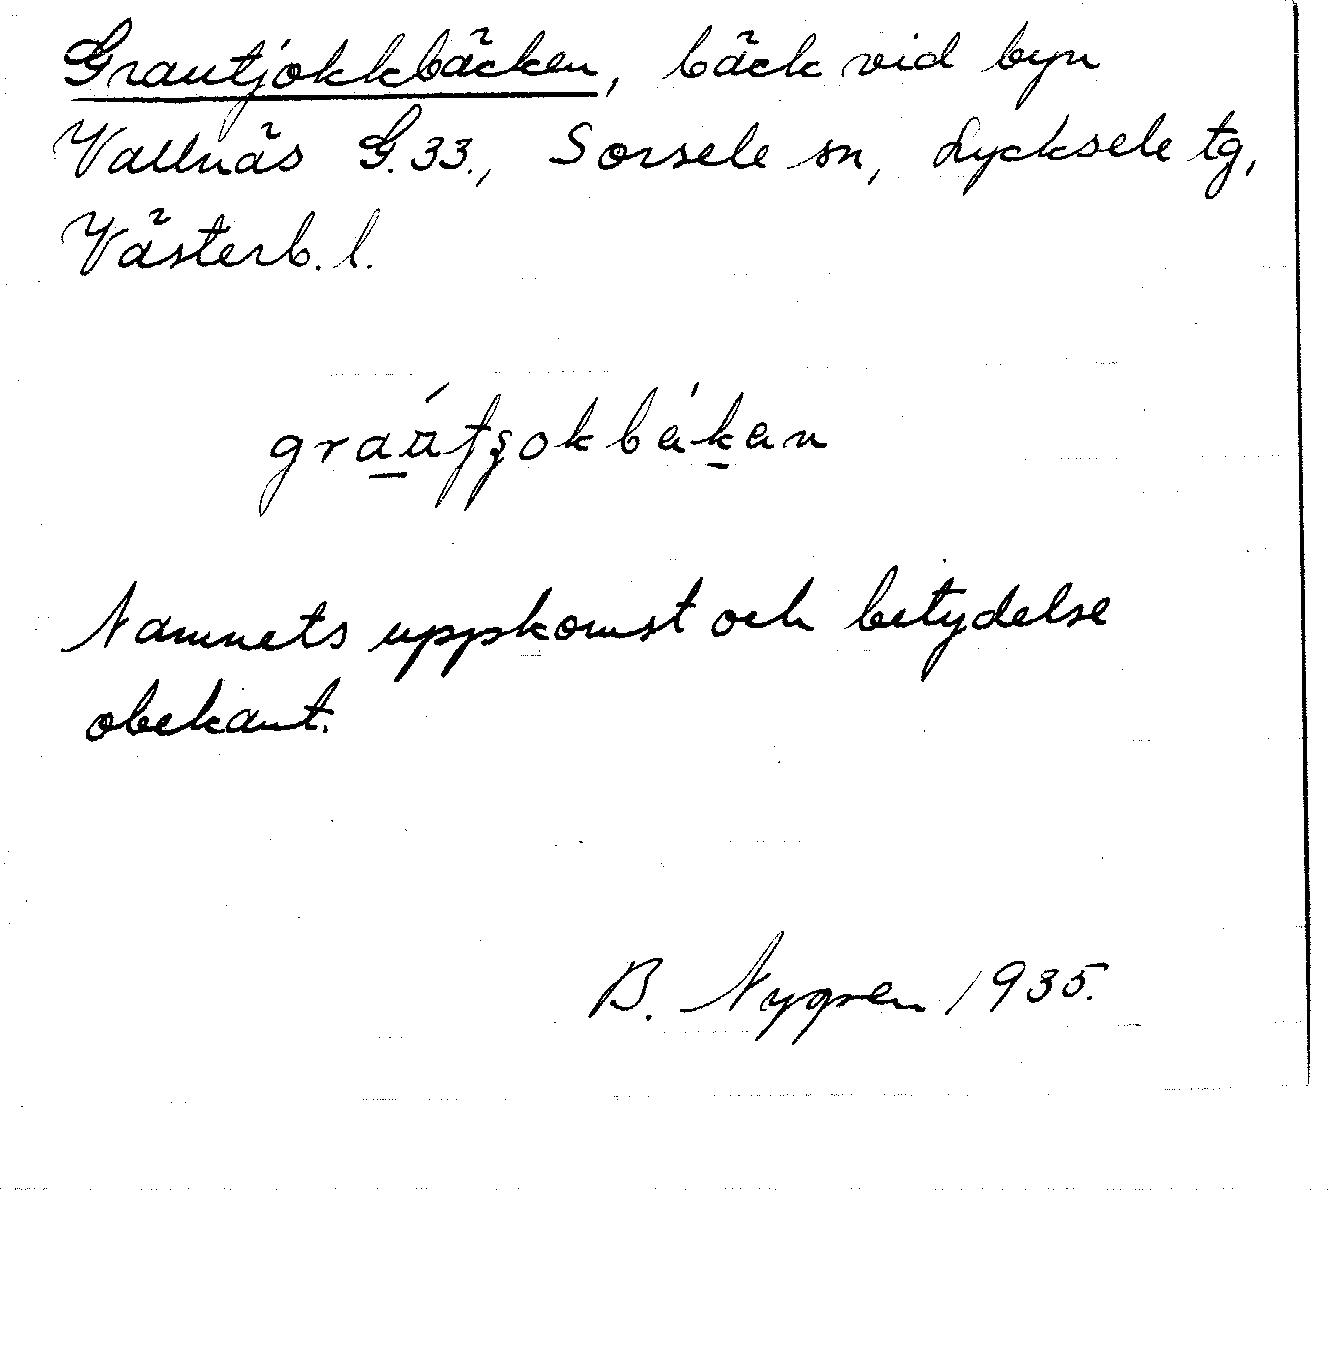 Grautjokkbäcken, bäck vid byn
Vallnäs G.33., Sorsele sn, Lycksele tg,
Västerb. l.
Namnets uppkomst och betydelse
obekant.
B. Nygren 1935.